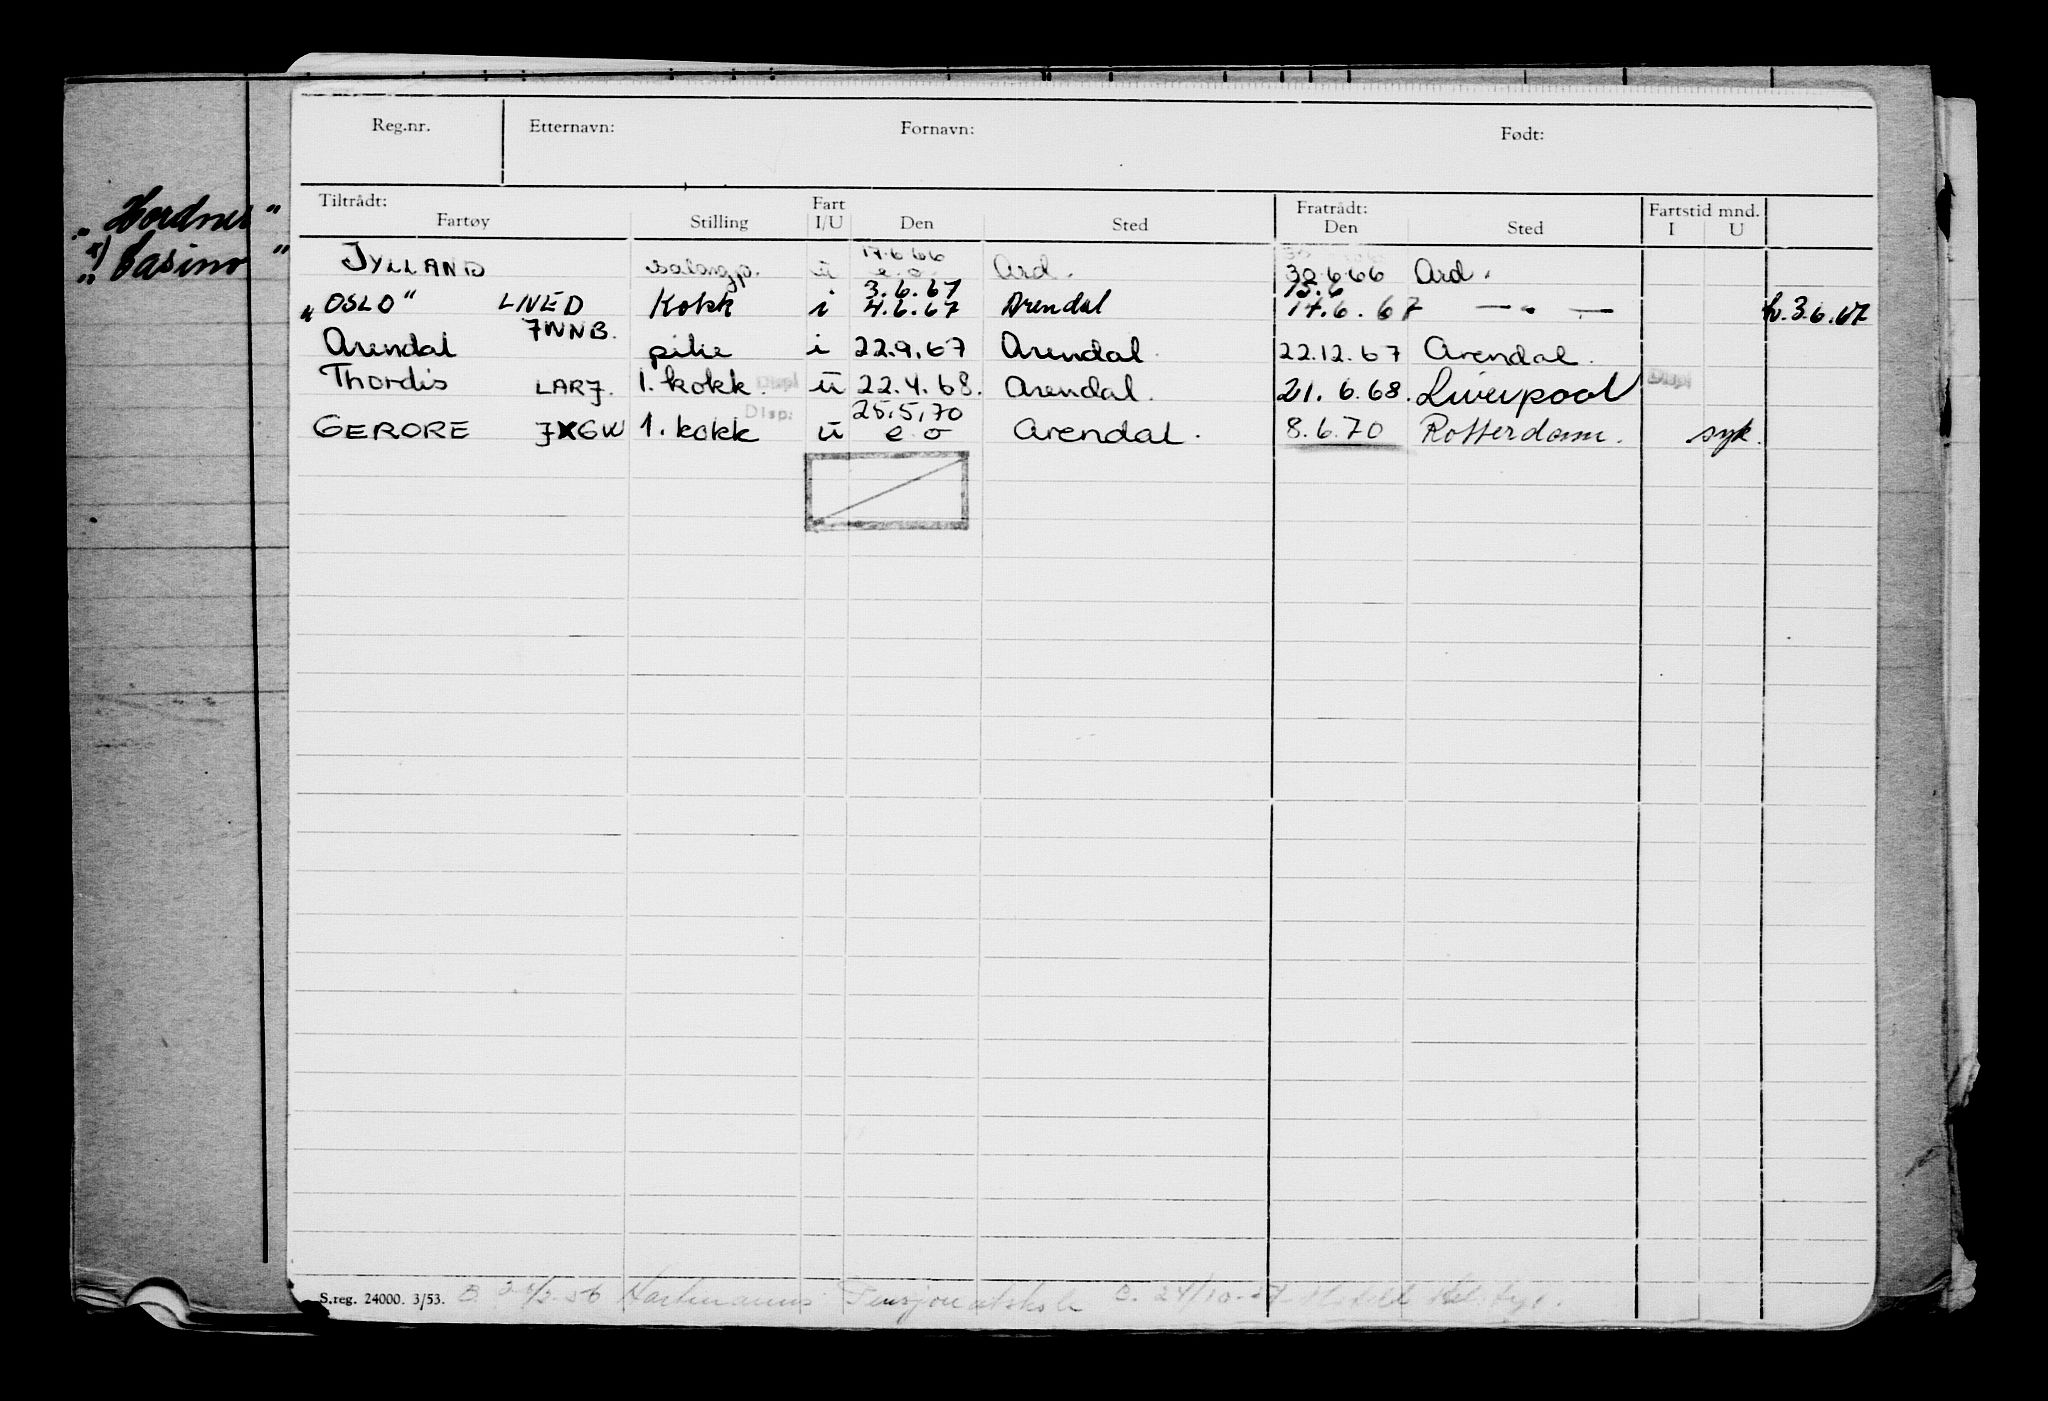 Reg.nr. Etternavn: Fornavn: Født:
Tiltrådt: Fartøy Stilling Fart I/U Den Sted Fratrådt: Den Sted Fartstid mnd. I U
JYLLAND salongp. u 17.6.66 e.o. Ard. 30.6.66 Ard.
"OSLO" LNED Kokk i 3.6.67 4.6.67 Arendal 15.6 14.6.67 — " — h. 3.6.67
Arendal JWNB. pike i 22.9.67 Arendal 22.12.67 Arendal.
Thordis LARJ. 1. kokk. Disp! u 22.4.68. Arendal. 21.6.68. Liverpool Disp!
GERORE JXGW 1. kokk Disp: u 25.5.70 e.o Arendal. 8.6.70 Rotterdam. syk.
"Casino"
S.reg. 24000. 3/53.